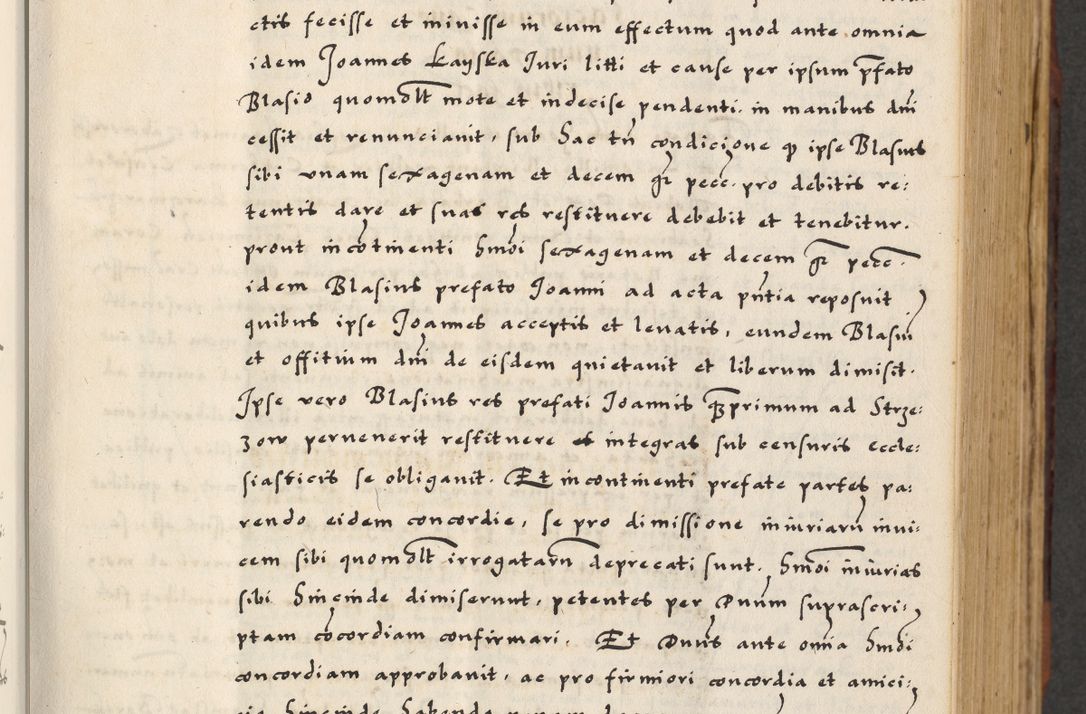 ctis fecisse et inivisse in eum effectum quod ante omnia
idem Joannes Kayska Juri litti et cause per ipsum p̃fato
Blasio quomo͞lt mote et indecise pendenti. in manibus dn̄i
cessit et renunciavit, sub hac tn̄ condicione ꝙ ipse Blasius
sibi unam sexagenam et decem gr̄ pecc. pro debitis re:
tentis dare et suas res restituere debebit et tenebitur.
prout incōtinenti hmōi sexagenam et decem gr̄ pecc.
idem Blasius prefato Joanni ad acta pn̄tia reposuit
quibus ipse Joannes acceptis et levatis, eundem Blasiū
et offitium dn̄i de eisdem quietavit et liberum dimisit.
Ipse vero Blasius res prefati Joannis q̄primum ad Strze:
zow pervenerit restituere et integras sub censuris eccle:
siasticis se obligavit. Et incontinenti prefate partes pa:
rendo eidem concordie, se pro dimissione iniuriarū invi:
cem sibi quomo͞lt irrogatarū deprecati sunt. hmōi iniurias
sibi hincinde dimiserunt, petentes per Dnūm suprascri:
ptam cōcordiam confirmari. Et Dnūs ante omīa hmōi
concordiam approbavit, ac pro firmiori concordia et amici:
hincinde habenda